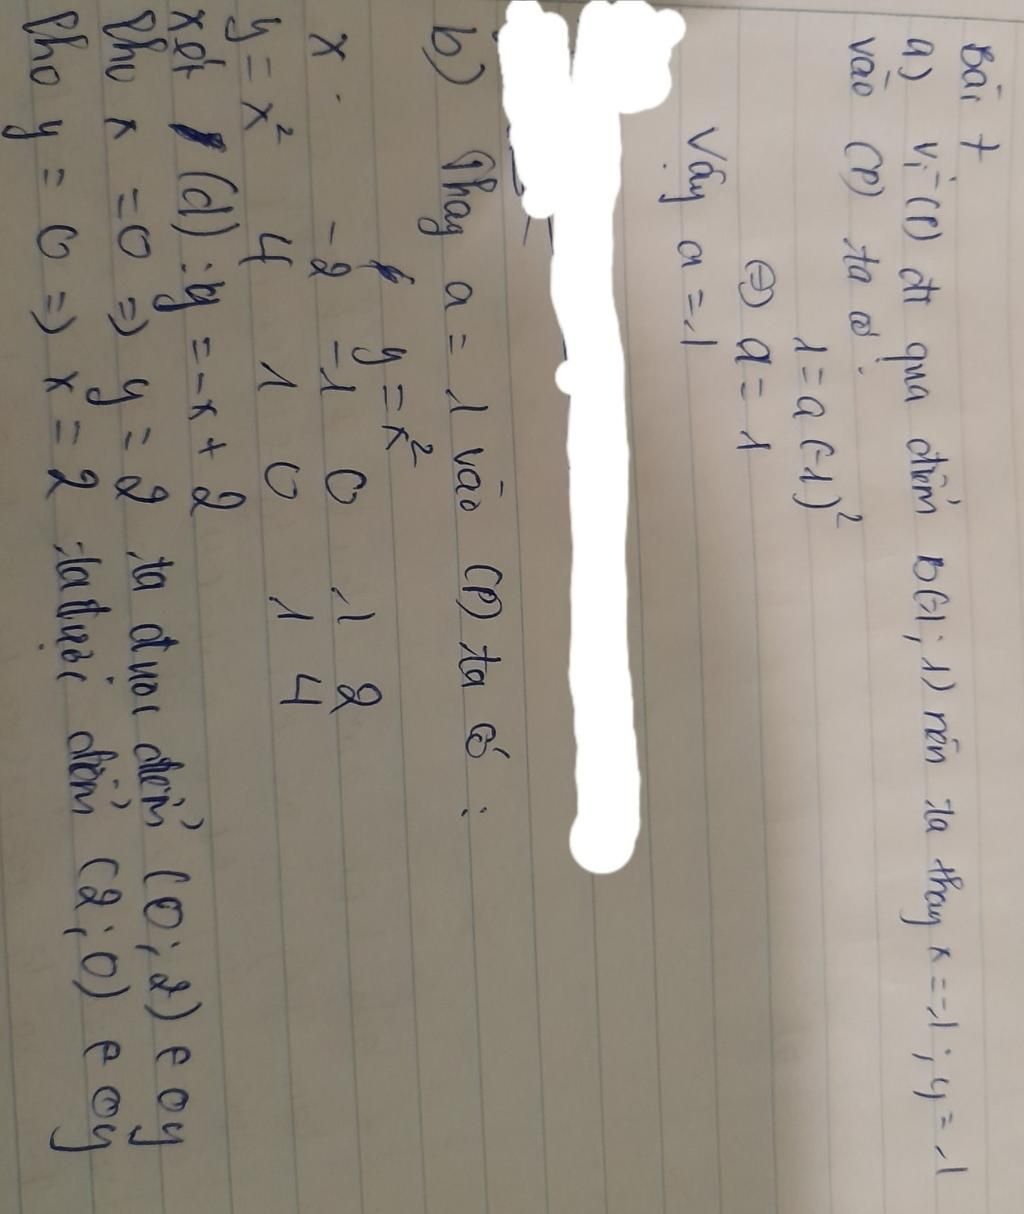 Bài 7
a) Vì (P) đi qua điểm B(-1; 1) nên ta thay x = -1; y = 1
vào (P) ta có:
1 = a (-1)²
⇔ a = 1
Vậy a = 1
b) Thay a = 1 vào (P) ta có:
y = x²
x -2 -1 0 1 2
y = x² 4 1 0 1 4
xét (d): y = -x + 2
Cho x = 0 => y = 2 ta được điểm (0; 2) ∈ oy
Cho y = 0 => x = 2 ta được điểm (2; 0) ∈ oy